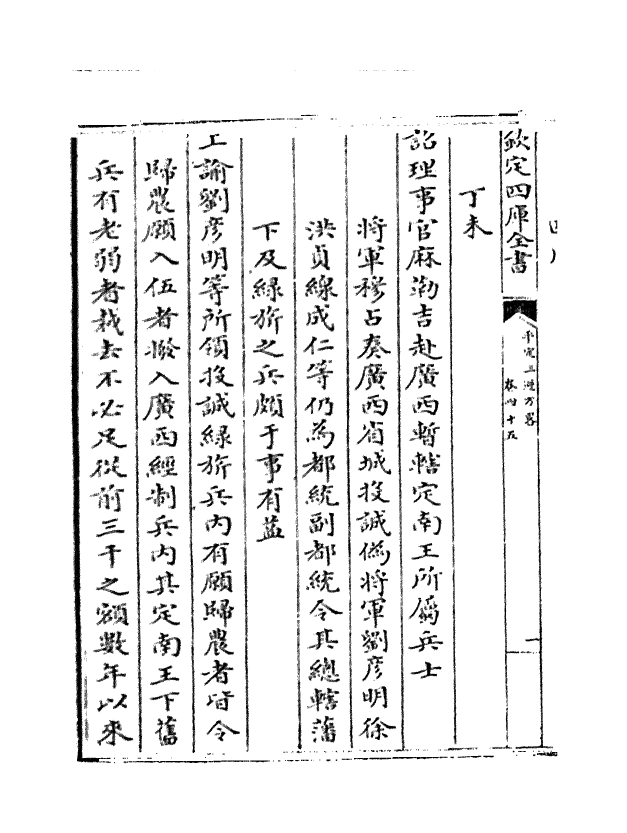 欽定四庫全書
平定三逆方畧
卷四十五
丁未
詔理事官麻勒吉赴廣西暫轄定南王所屬兵士
將軍穆占奏廣西省城投誠偽將軍劉彦明徐
洪貞線成仁等仍為都統副都統令其總轄藩
下及緑旂之兵頗于事有益
上諭劉彦明等所領投誠緑旂兵内有願歸農者皆令
歸農願入伍者撥入廣西經制兵内其定南王下舊
兵有老弱者裁去不必足從前三千之額數年以來